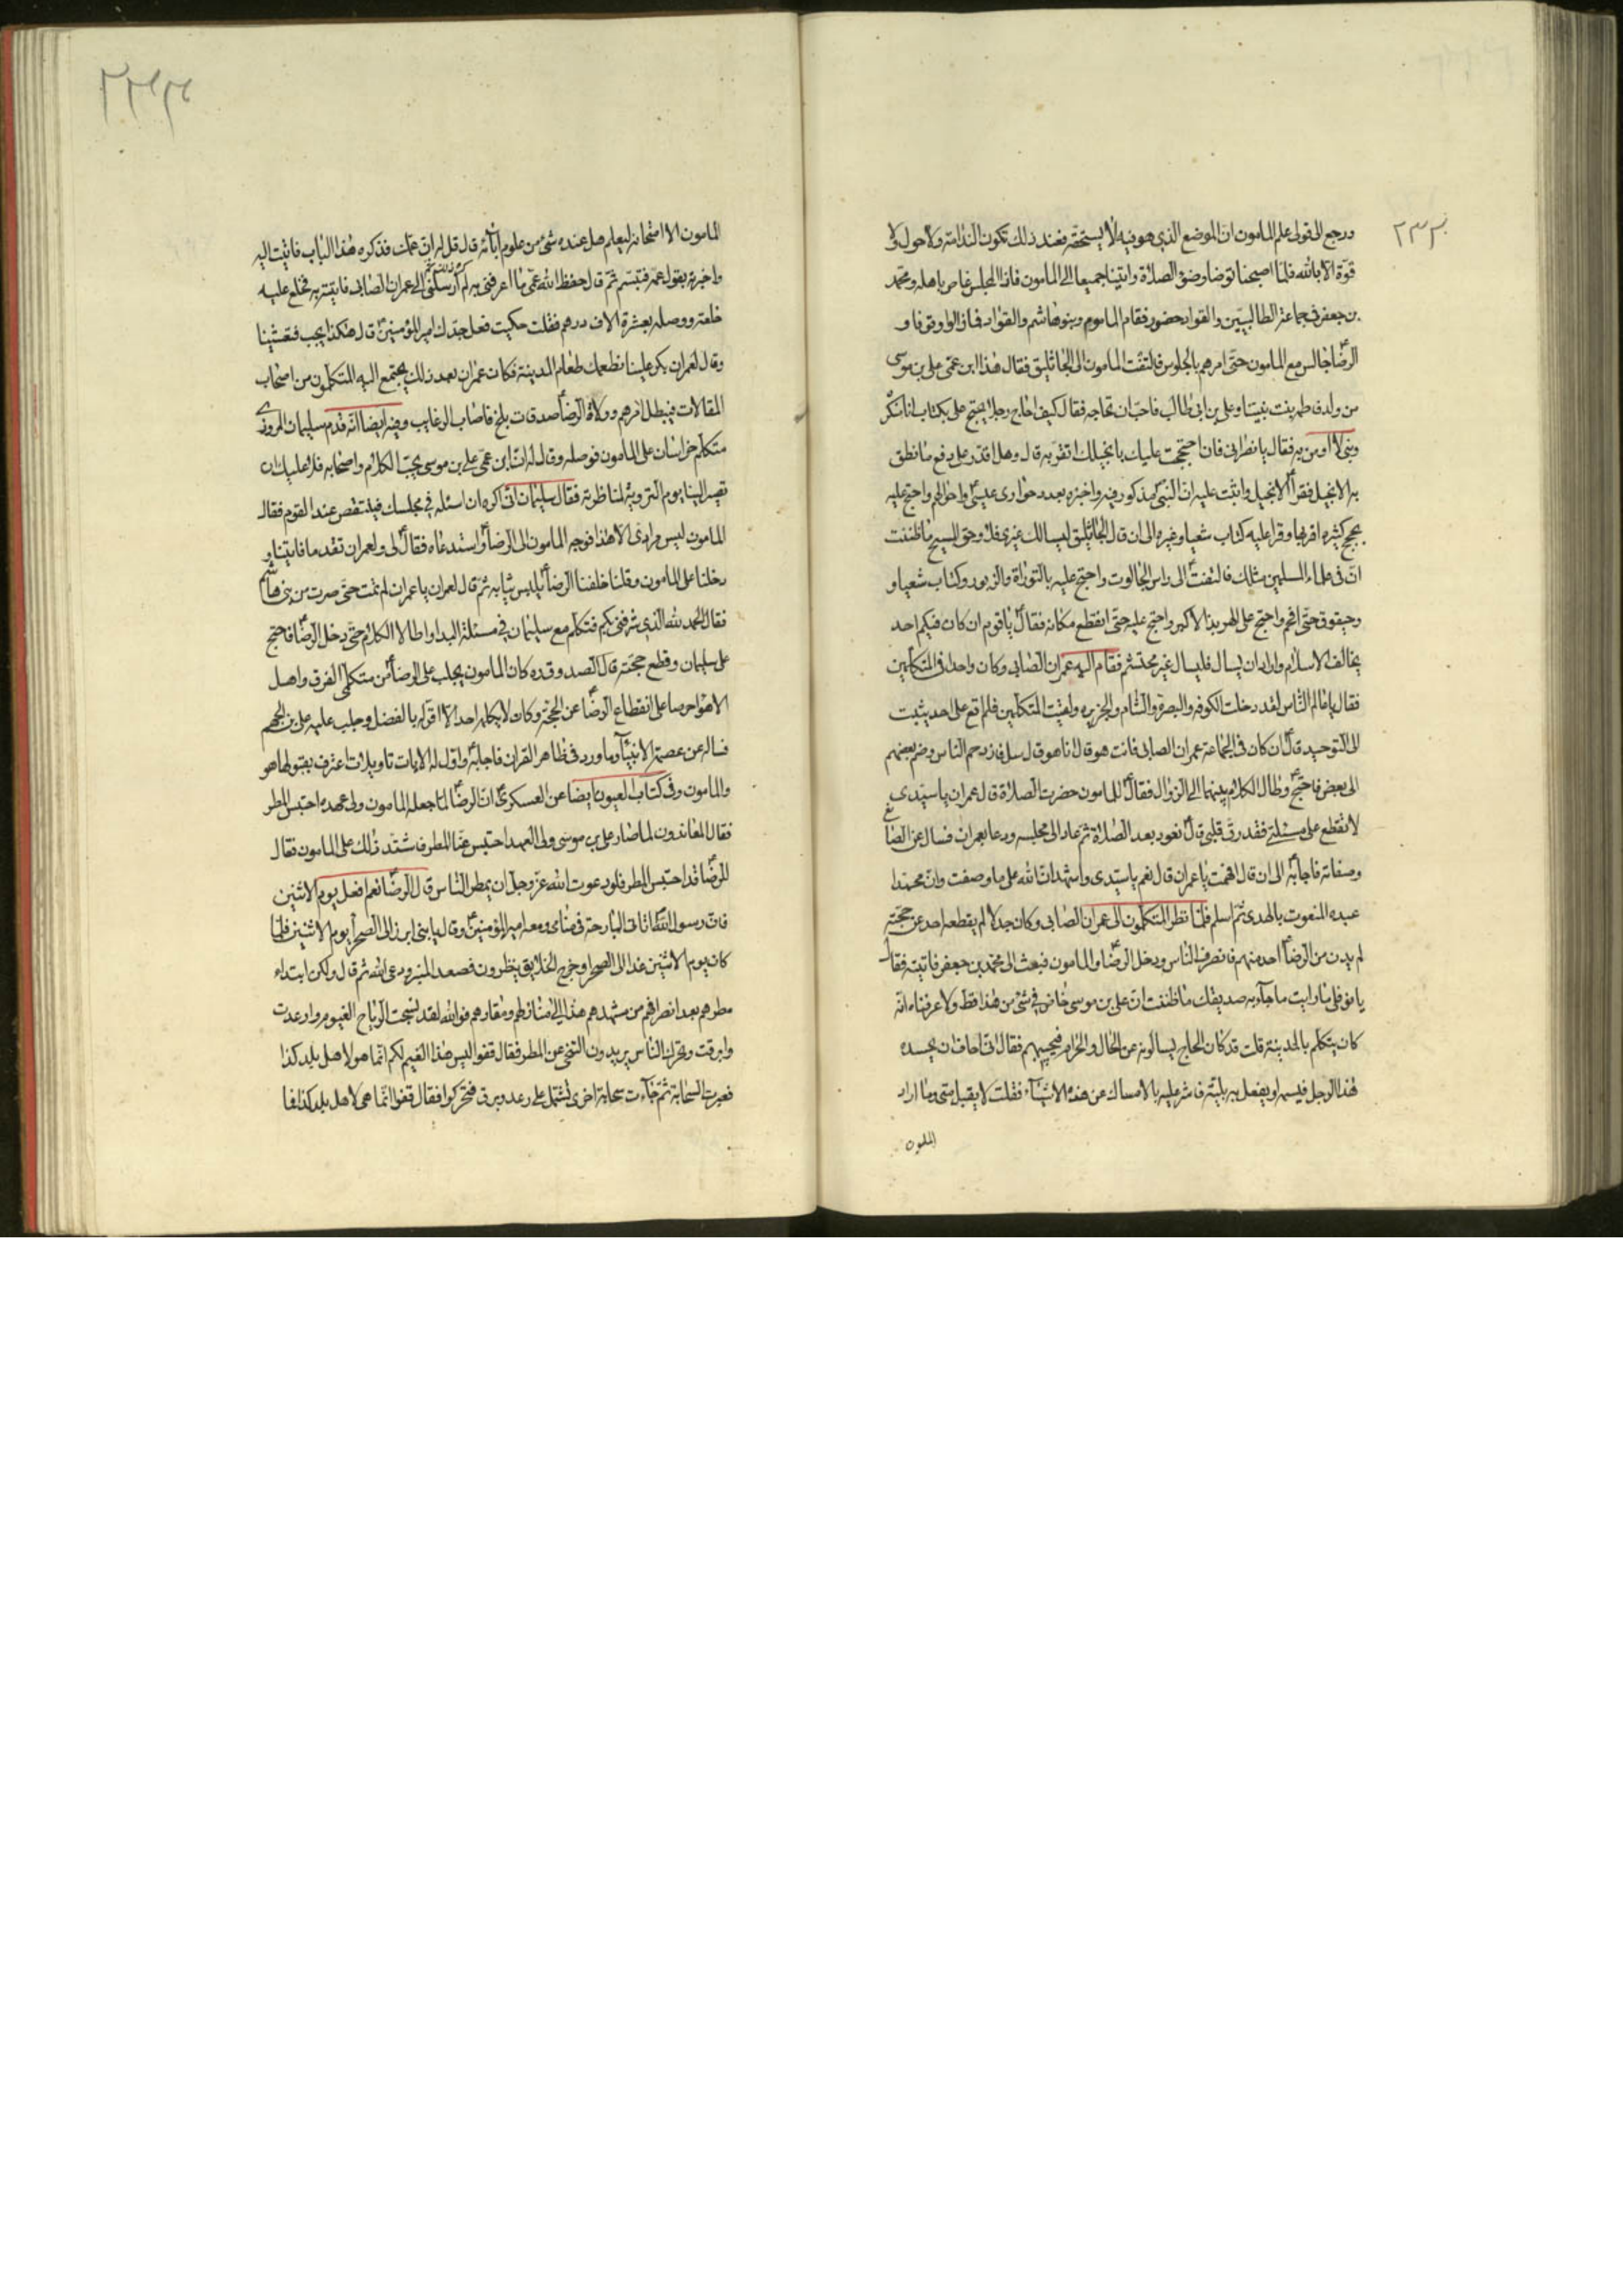 ٢٣٣
ورجع الى قولى علم المامون ان الموضع الذى هو فيه لا يستحقه فعند ذلك تكون الندامة ولا حول ولا
قوة الا بالله فلما اصبحنا توضا وضوء الصلاة واتينا جميعا الى المامون فاذا المجلس غاص باهله ومحمد
بن جعفر فى جماعة الطالبيين والقواد حضور فقام المامون وبنوهاشم والقواد فما زالوا وقوفا و
الرضا جالس مع المامون حتى امرهم بالجلوس فالتفت المامون الى الجاثليق فقال هذا ابن عمى على بن موسى
من ولد فاطمه بنت نبينا وعلى بن ابى طالب فاحب ان تحاجه فقال كيف احاج رجلا يحتج على بكتاب انا منكره
ونبى لا اومن به فقال يا نصرانى فان احتججت عليك بانجيلك اتقر به قال وهل اقدر على دفع ما نطق
به الانجيل فقرا الانجيل واثبت عليه ان النبى مذكور فيه واخبره بعدد حوارى عيسى واحوالهم واحتج عليه
بحجج كثيره اقر بها وقرا عليه كتاب شعيا وغيره الى ان قال الجاثليق ليسالك غيرى فلا وحق المسيح ما ظننت
ان فى علماء المسلمين مثلك فالتفت الى راس الجالوت واحتج عليه بالتوراة والزبور وكتاب شعيا و
وحيقوق حتى افحم واحتج على الهربذ الاكبر واحتج عليه حتى انقطع مكانه فقال يا قوم ان كان فيكم احد
يخالف الاسلام واراد ان يسال فليسال غير محتشم فقام اليه عمران الصابى وكان واحدا فى المتكلمين
فقال يا عالم الناس لقد دخلت الكوفه والبصرة والشام والجزيره ولقيت المتكلمين فلم اقع على احد يثبت
لى التوحيد قال ان كان فى الجماعة عمران الصابى فانت هو قال انا هو قال سل فازدحم الناس وضم بعضهم
الى بعض فاحتج وطال الكلام بينهما الى الزوال فقال للمامون حضرت الصلاة قال عمران يا سيدى
لا تقطع على مسئلتى فقد رق قلبى قال نعود بعد الصلاة ثم عاد الى مجلسه ودعا بعمران فسال عن الصانع
وصفاته فاجابه الى ان قال افهمت يا عمران قال نعم يا سيدى واشهد ان الله على ما وصفت وان محمدا
عبده المنعوت بالهدى ثم اسلم فلما نظر المتكلمون الى عمران الصابى وكان جدلا لم يقطعه احد عن حجته
لم يدن من الرضا احد منهم فانصرف الناس ودخل الرضا والمامون فبعث الى محمد بن جعفر فاتيته فقال
يا نوفلى ما رايت ما جآء به صديقك ما ظننت ان على بن موسى خاض فى شئ من هذا قط ولا عرفناه انه
كان يتكلم بالمدينة قلت قد كان الحاج يسالونه عن الحلال والحرام فيجيبهم فقال انى اخاف ان يحسده
هذا الرجل فيسمه او يفعل به بلية فاشر عليه بالامساك عن هذه الاشيآء فقلت لا يقبل منى وما اراد
المامون
المامون الا امتحانه ليعلم هل عنده شئ من علوم آبآئه قال قل له ان عمك قد كره هذا الباب فاتيت اليه
واخبرته بقول عمه فتبسم ثم قال حفظ الله عمى ما اعرفنى به لم كره ذلك ثم ارسلنى الى عمران الصابى فاتيته به فخلع عليه
خلعة ووصله بعشرة الاف درهم فقلت حكيت فعل جدك امير المؤمنين قال هكذا يجب فتعشينا
وقال لعمران بكر علينا نطعمك طعام المدينة فكان عمران بعد ذلك يجتمع اليه المتكلمون من اصحاب
المقالات فيبطل امرهم وولاه الرضا صدقات بلخ فاصاب الرغايب وفيه ايضا انه قدم سليمان المروزى
متكلم خراسان على المامون فوصله وقال له ان ابن عمى على بن موسى يحب الكلام واصحابه فلا عليك ان
تصير الينا يوم التروية لمناظرته فقال سليمان انى اكره ان اسئله فى مجلسك فينتقص عند القوم فقال
المامون ليس مرادى الا هذا فوجه المامون الى الرضا واستدعاه فقال لى ولعمران تقدما فاتينا و
دخلنا على المامون وقلنا خلفنا الرضا يلبس ثيابه ثم قال لعمران يا عمران لم تمت حتى صرت من بنى هاشم
فقال الحمد لله الذى شرفنى بكم فتكلم مع سليمان فى مسئلة البدا واطالا الكلام حتى دخل الرضا فاحتج
على سليمان وقطع حجته قال الصدوق ره كان المامون يجلب على الرضا من متكلمى الفرق واهل
الاهوآء حرصا على انقطاع الرضا عن الحجة وكان لا يكلمه احد الا اقر له بالفضل وجلب عليه على بن الجهم
فساله عن عصمة الانبيآء وما ورد فى ظاهر القران فاجابه واول له الايات تاويلات اعترف بقبولها هو
والمامون وفى كتاب العيون ايضا عن العسكرى ان الرضا لما جعله المامون ولى عهده احتبس المطر
فقال المعاندون لما صار على بن موسى ولى العهد احتبس عنا المطر فاشتد ذلك على المامون فقال
للرضا قد احتبس المطر فلو دعوت الله عز وجل ان يمطر الناس قال الرضا نعم افعل يوم الاثنين
فان رسول الله اتانى البارحة فى منامى ومعه امير المؤمنين وقال يا بنى ابرز الى الصحرآء يوم الاثنين فلما
كان يوم الاثنين غدا الى الصحرا وخرج الخلايق ينظرون فصعد المنبر ودعى الله ثم قال وليكن ابتداء
مطرهم بعد انصرافهم من مشهدهم هذا الى منازلهم ومقارهم فوالله لقد نسجت الرياح الغيوم وارعدت
وابرقت وتحرك الناس يريدون التنحى عن المطر فقال قفوا ليس هذا الغيم لكم انما هو لاهل بلد كذا
فعبرت السحابة ثم جآءت سحابة اخرى تشتمل على رعد وبرق فتحركوا فقال قفوا انما هى لاهل بلد كذا فما